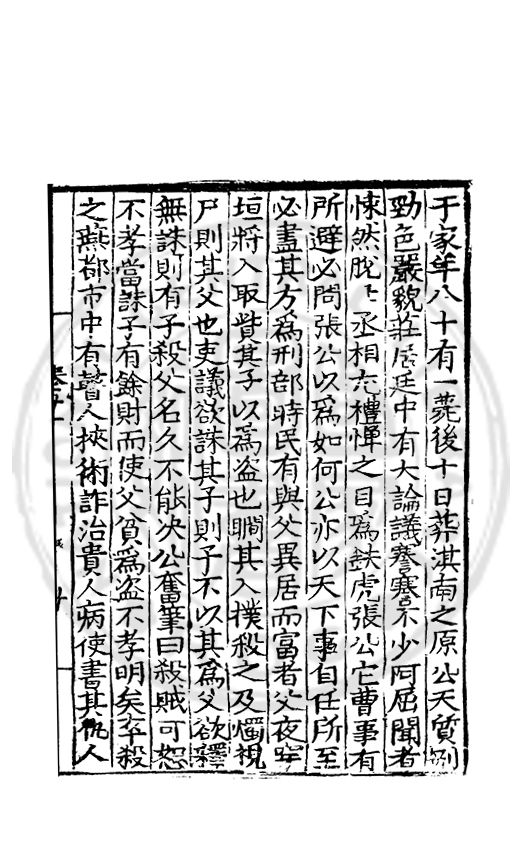 于家年八十有一薨後十日葬淇南之原公天質剛
勁色嚴貌莊居廷中有大論議謇謇不少阿屈聞者
悚然脫上丞相尤憚之目爲鉄虎張公它曹事有
所避必問張公以爲如何公亦以天下事自任所至
必盡其方爲刑部時民有與父異居而富者父夜穿
垣將入取貲其子以爲盗也瞷其入撲殺之及燭視
尸則其父也吏議欲誅其子則子不以其爲父欲釋
無誅則有子殺父名久不能决公奮筆曰殺賊可恕
不孝當誅子有餘財而使父貧爲盗不孝明矣卒殺
之燕都市中有瞽人挾術詐治貴人病使書其仇人